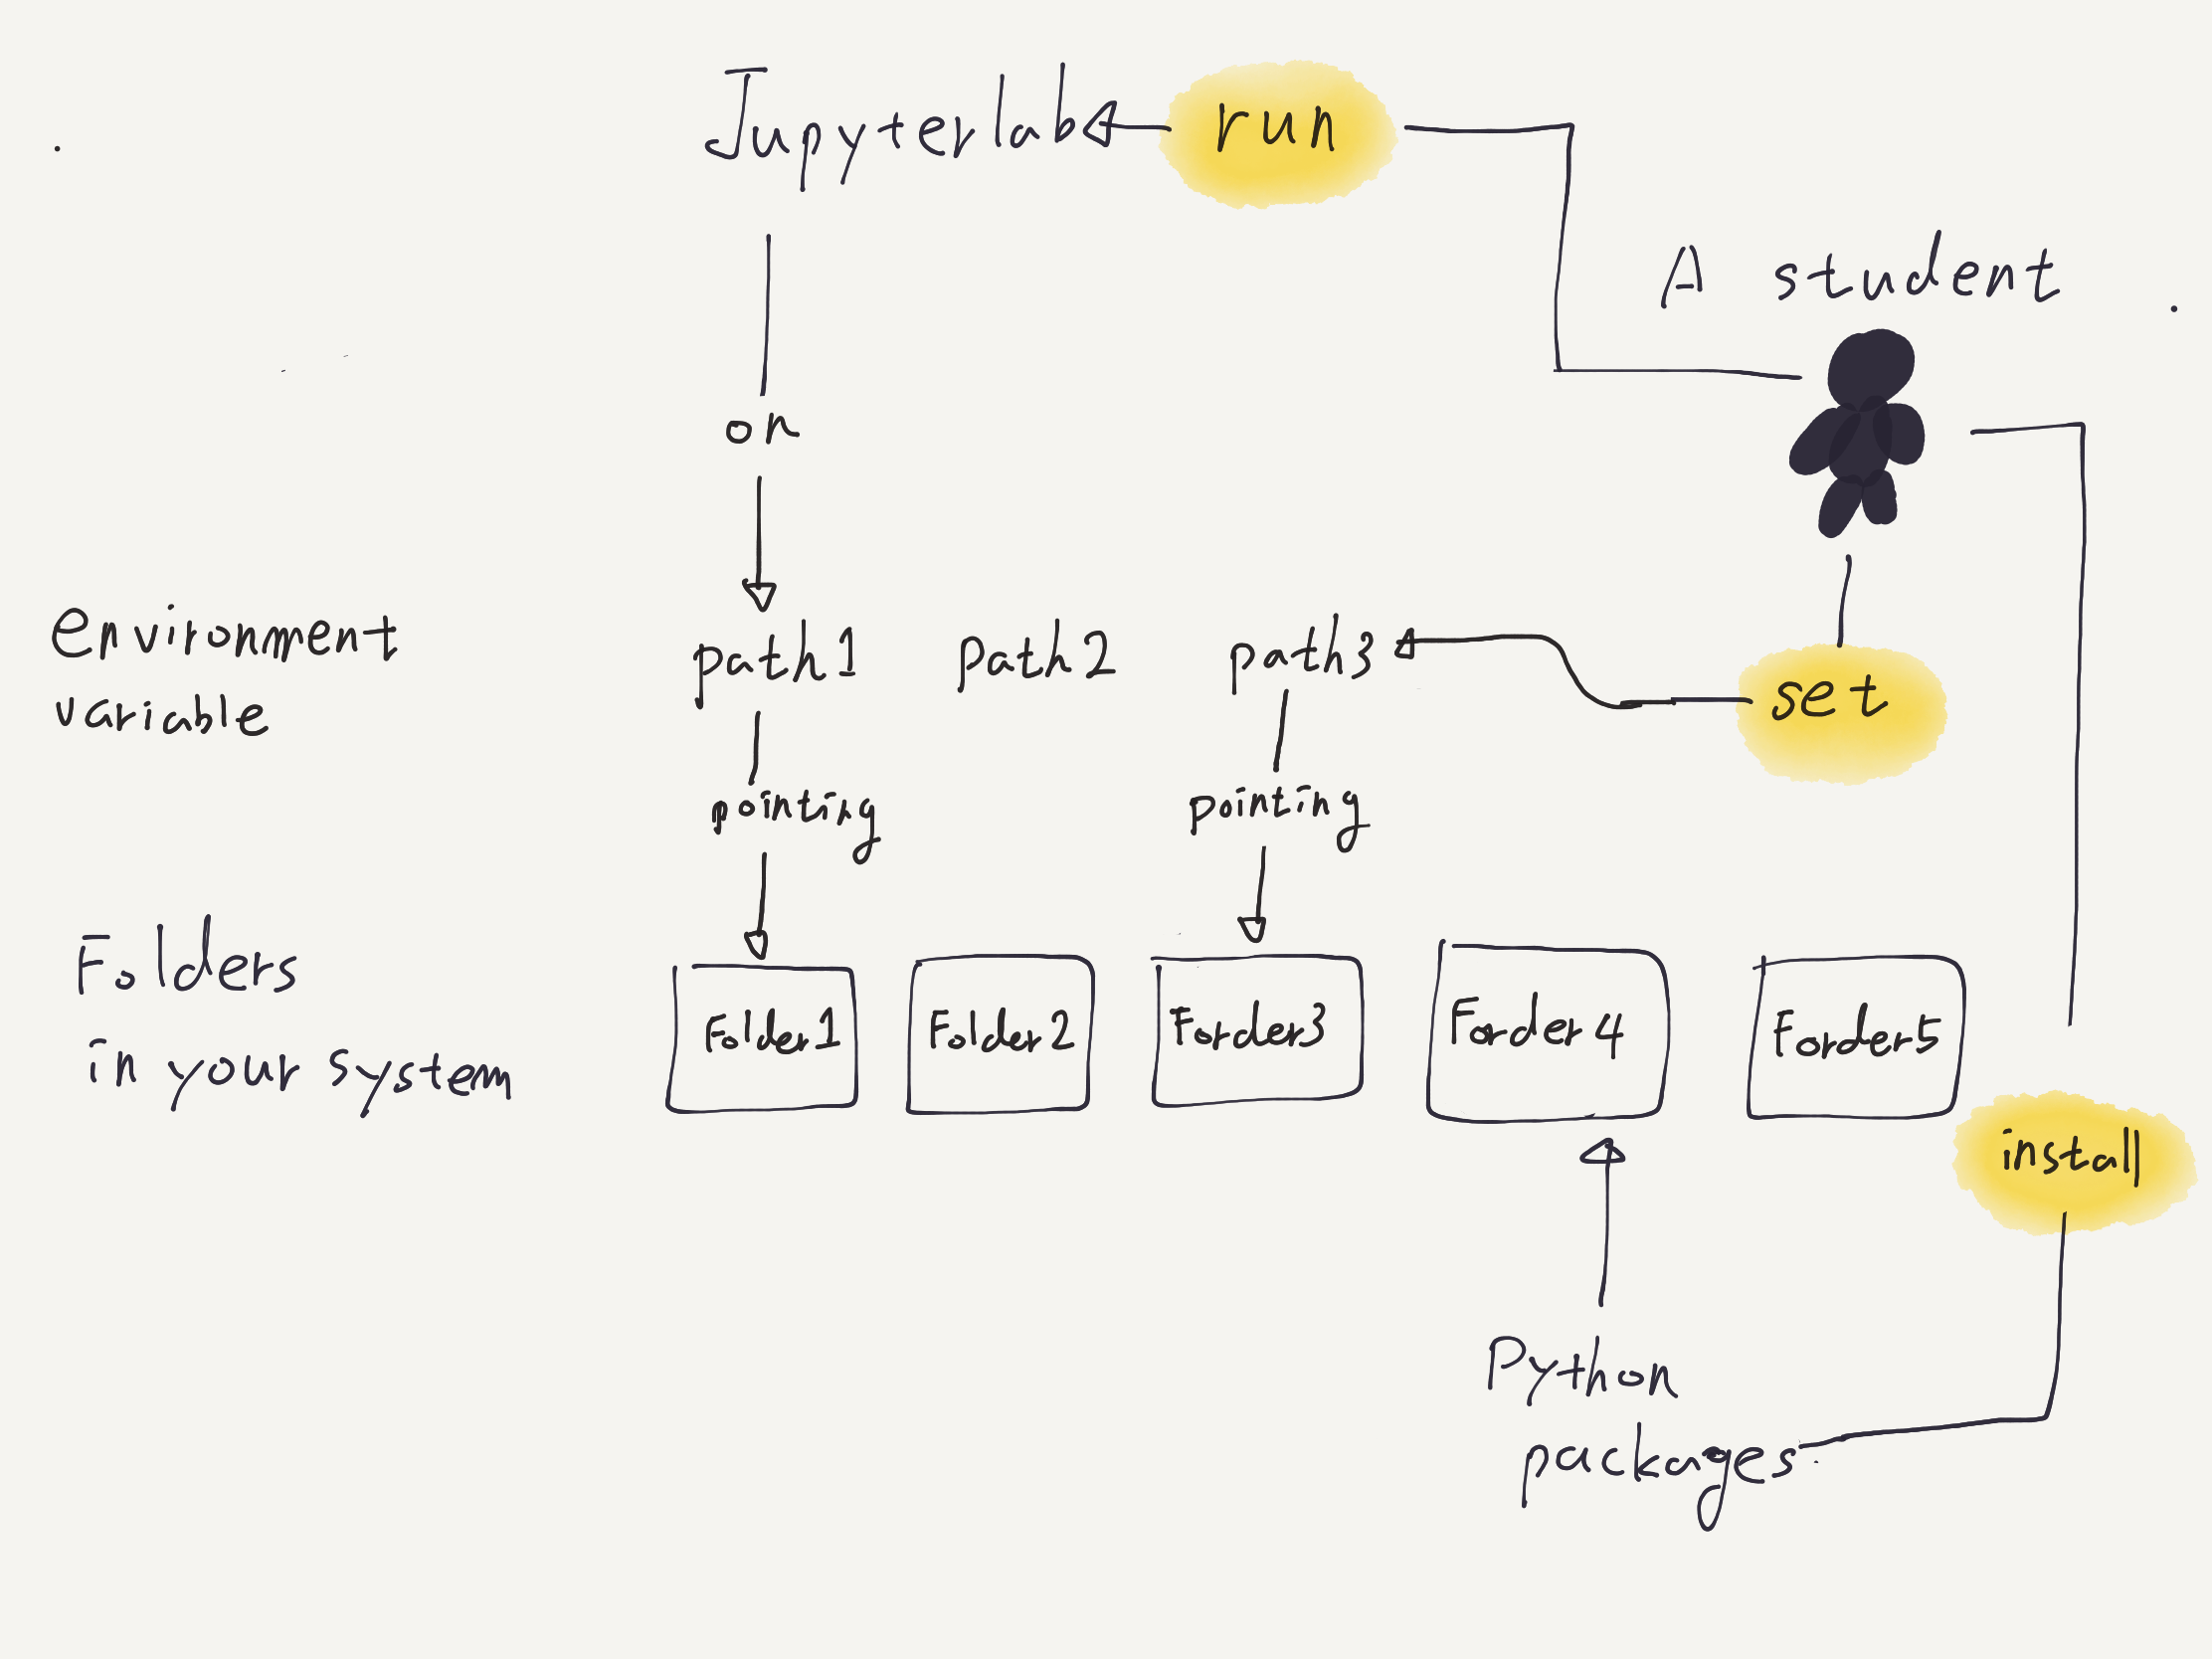 Jupyterlab run
A student
on
environment
variable
path1 path2 path3
set
pointing pointing
Folders
in your system
Folder1 Folder2 Forder3 Forder4 Forder5
install
Python
packages